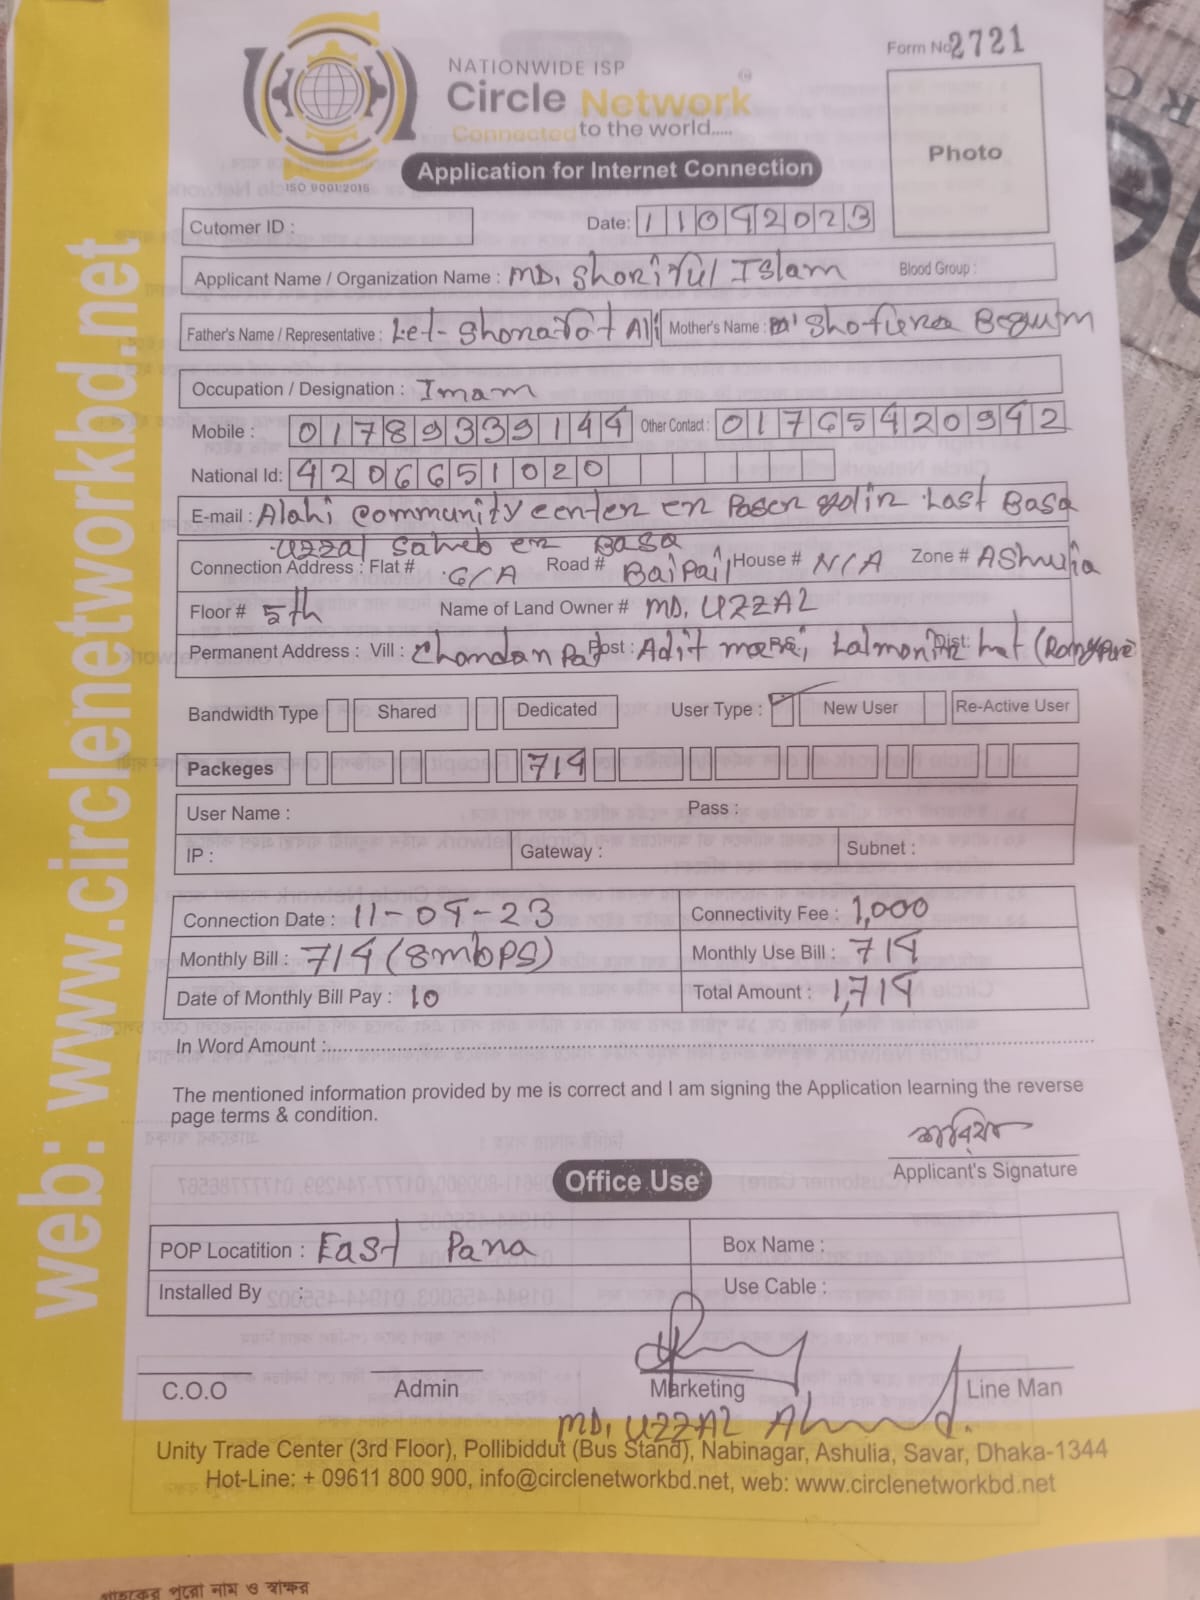 Form No 2721
NATIONWIDE ISP
Circle Network ®
Connected to the world.....
ISO 9001:2015
Application for Internet Connection
Photo
Cutomer ID :
Date: 11042023
Applicant Name / Organization Name : MD. Shoriful Islam Blood Group :
Father's Name / Representative : Let- Ali Mother's Name : Begum
Occupation / Designation : Imam
Mobile : 01789339144 Other Contact : 01765420942
National Id: 4206651020
E-mail : Alahi community center er Last Basa
Uzzal Saheb er Basa
Connection Address : Flat # G/A Road # Baipail House # N/A Zone # Ashulia
Floor # 5th Name of Land Owner # MD. UZZAL
Permanent Address : Vill : Chandan Pat Post : Adit mari, Dist: Lalmonir hat
Bandwidth Type Shared Dedicated User Type : New User Re-Active User
Packeges 714
User Name : Pass :
IP : Gateway : Subnet :
Connection Date : 11-04-23 Connectivity Fee : 1,000
Monthly Bill : 714 (8mbps) Monthly Use Bill : 714
Date of Monthly Bill Pay : 10 Total Amount : 1,714
In Word Amount :
The mentioned information provided by me is correct and I am signing the Application learning the reverse
page terms & condition.
Applicant's Signature
Office Use
POP Locatition : East Para Box Name :
Installed By : Use Cable :
C.O.O Admin Marketing Line Man
MD. UZZAL Ahmed.
Unity Trade Center (3rd Floor), Pollibiddut (Bus Stand), Nabinagar, Ashulia, Savar, Dhaka-1344
Hot-Line: + 09611 800 900, info@circlenetworkbd.net, web: www.circlenetworkbd.net
web: www.circlenetworkbd.net
গ্রাহকের পুরো নাম ও স্বাক্ষর